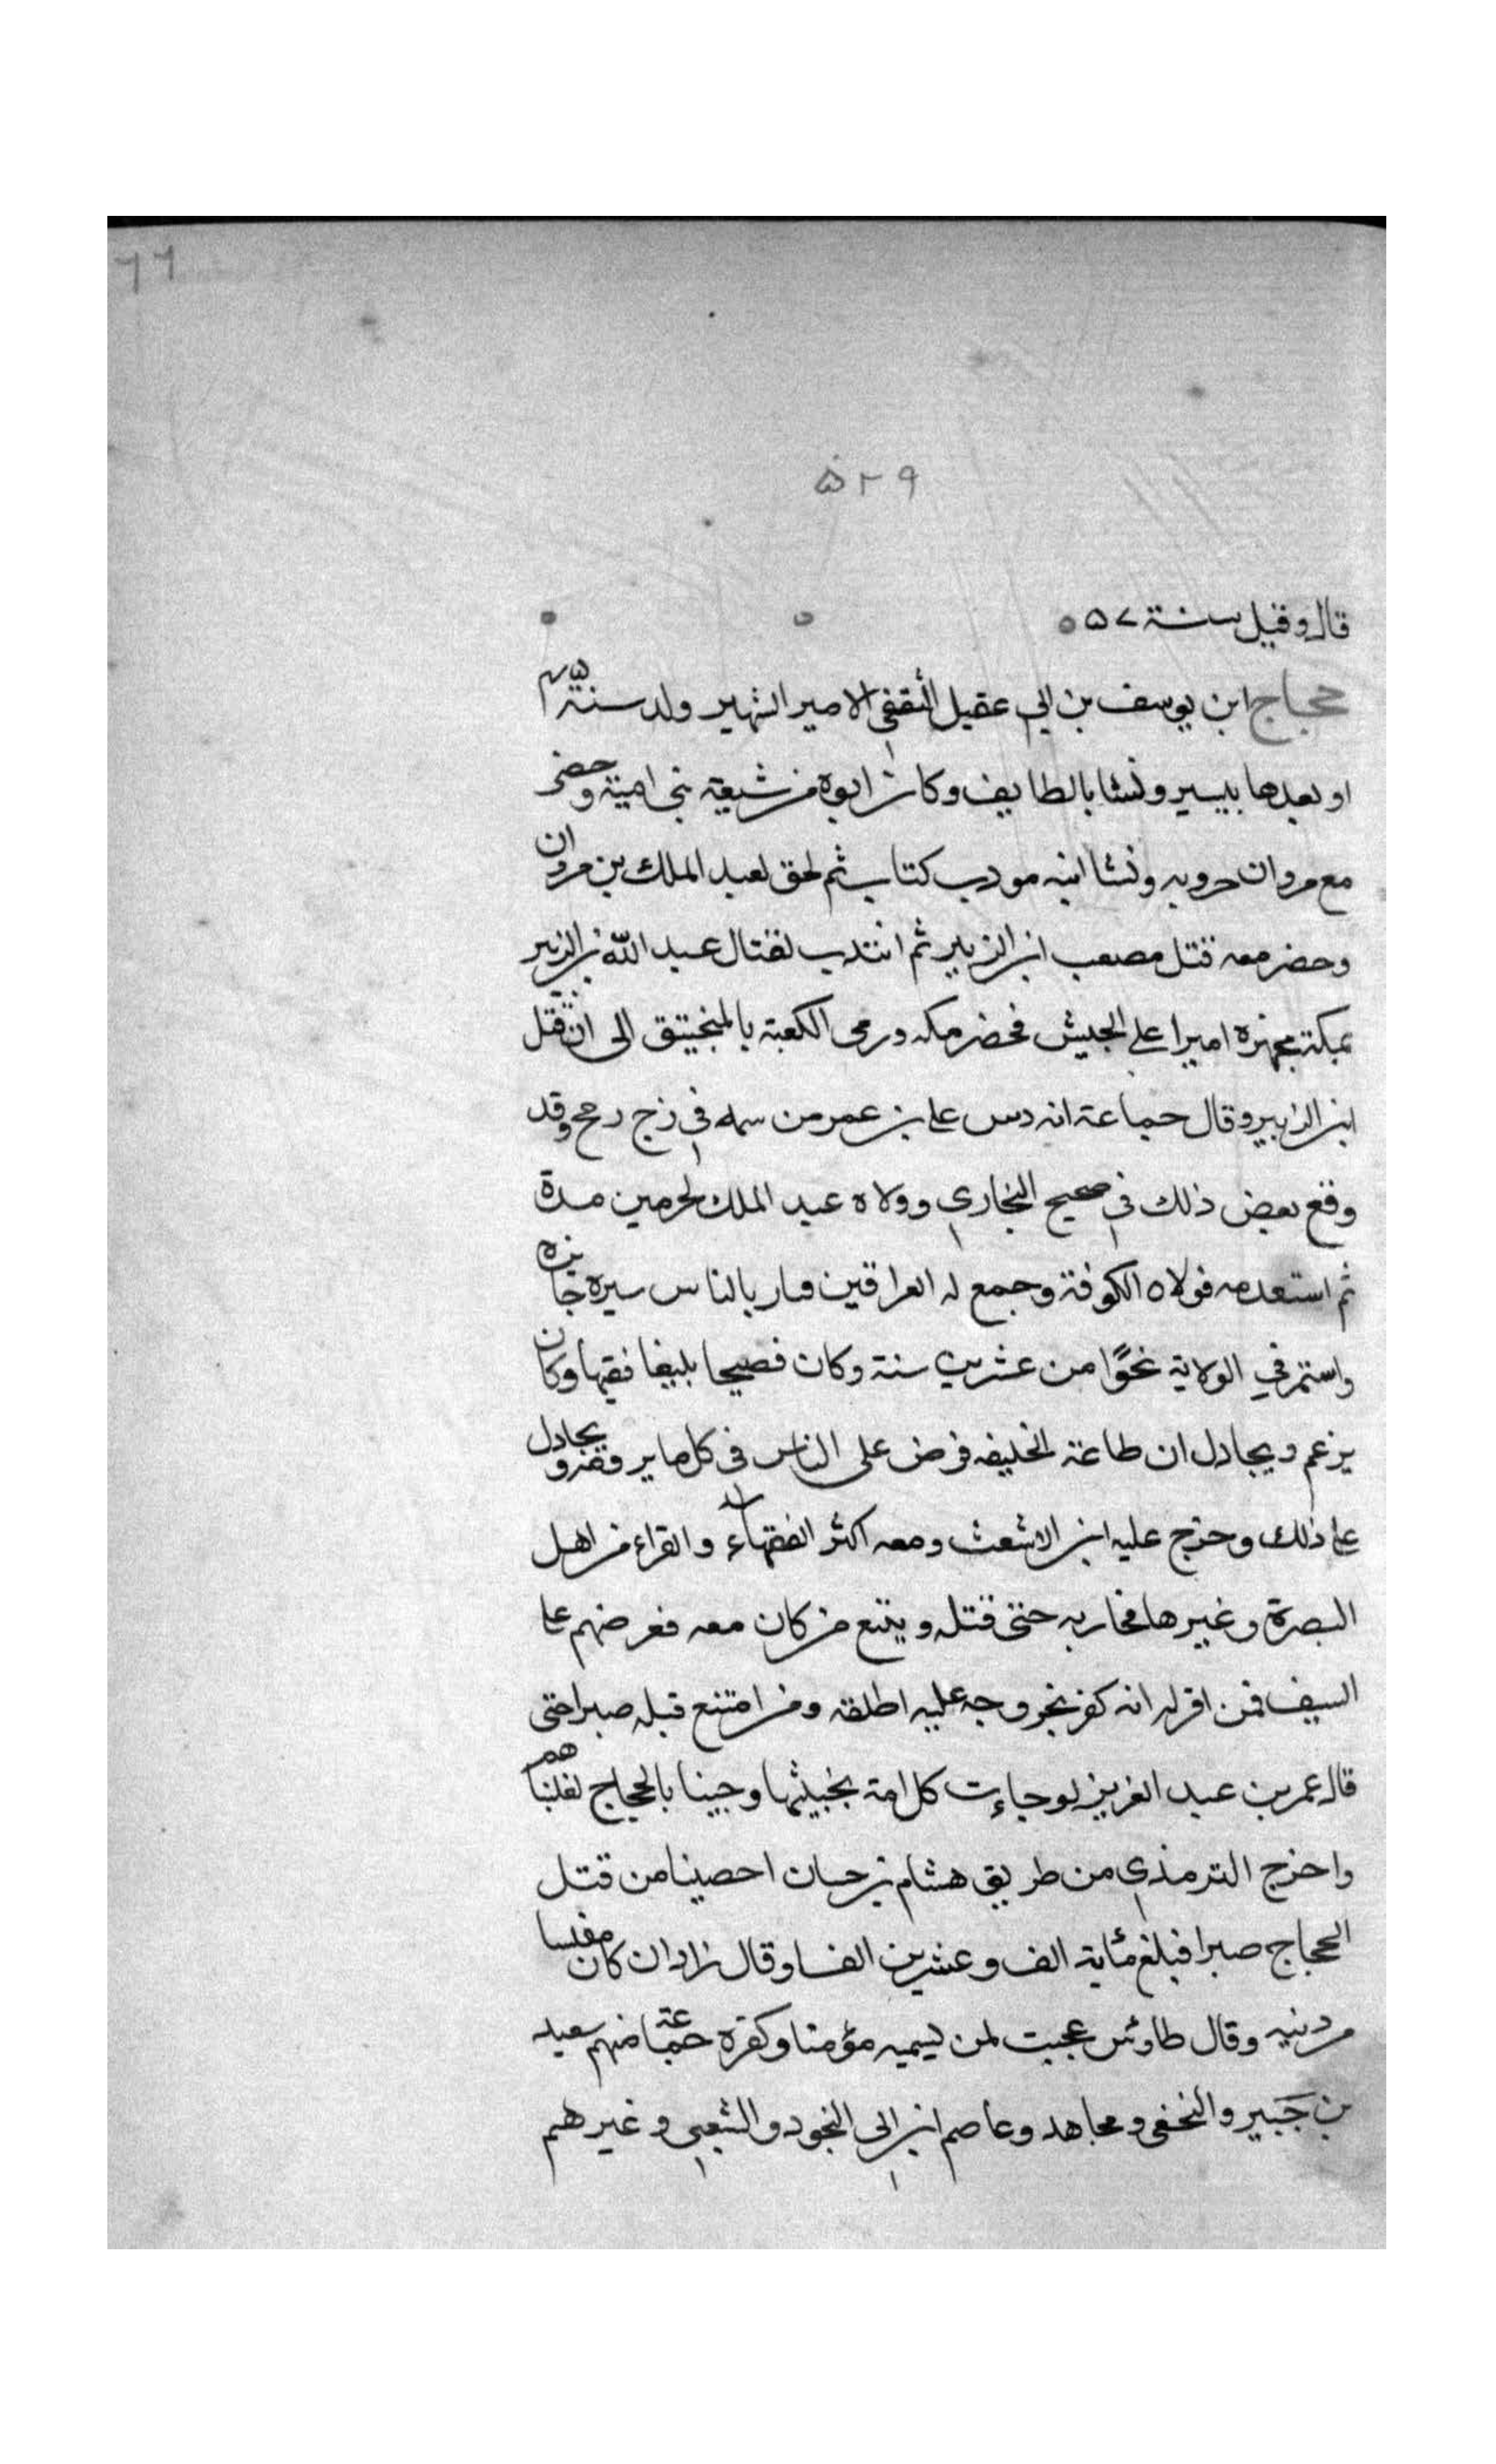 ٦٦
٥٢٩
قال وقيل سنة ٥٧
حجاج ابن يوسف بن ابي عقيل الثقفي الامير الشهير ولد سنة ٤٥
او بعدها بيسير ونشا بالطايف وكان ابوه من شيعة بني امية وحضر
مع مروان حروبه ونشا ابنه مودب كتاب ثم لحق بعبد الملك بن مروان
وحضر معه قتل مصعب ابن الزبير ثم انتدب لقتال عبد الله بن الزبير
بمكة فجهزه اميرا على الجيش فحضر مكه ورمى الكعبة بالمنجنيق الى ان قتل
ابن الزبير وقال جماعة انه دس على بن عمر من سمه في زج رمح وقد
وقع بعض ذلك في صحيح البخاري وولاه عبد الملك الحرمين مدة
ثم استعدمه فولاه الكوفة وجمع له العراقين فسار بالناس سيره جائزه
واستمر في الولاية نحوًا من عشرين سنة وكان فصيحا بليغا فقيها وكان
يزعم ويجادل ان طاعة الخليفه فرض على الناس في كل ما ير وقفرو يجادل
على ذلك وخرج عليه ابن الاشعث ومعه اكثر الفقهاء والقراء من اهل
البصرة وغيرها فحاربه حتى قتله ويتبع من كان معه فعرضهم على
السيف فمن اقر له انه كفر بخروجه عليه اطلقه ومن امتنع قبله صبرا حتى
قال عمر بن عبد العزيز لو جاءت كل امة بخبيثها وجينا بالحجاج لغلبناهم
واخرج الترمذي من طريق هشام بن حسان احصينا من قتل
الحجاج صبرا فبلغ مئاية الف وعشرين الفا وقال زاذان كان مفلسا
من دنيه وقال طاوس عجبت لمن يسميه مؤمنا وكفره جماعة منهم سعيد
بن جَبير والنخعي ومجاهد وعاصم ابن ابي النجود والشعبي وغيرهم